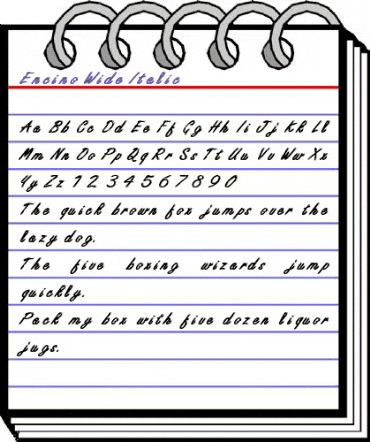 Encino Wide Italic
Aa Bb Cc Dd Ee Ff Gg Hh Ii Jj Kk Ll
Mm Nn Oo Pp Qq Rr Ss Tt Uu Vv Ww Xx
Yy Zz 1 2 3 4 5 6 7 8 9 0
The quick brown fox jumps over the
lazy dog.
The five boxing wizards jump
quickly.
Pack my box with five dozen liquor
jugs.